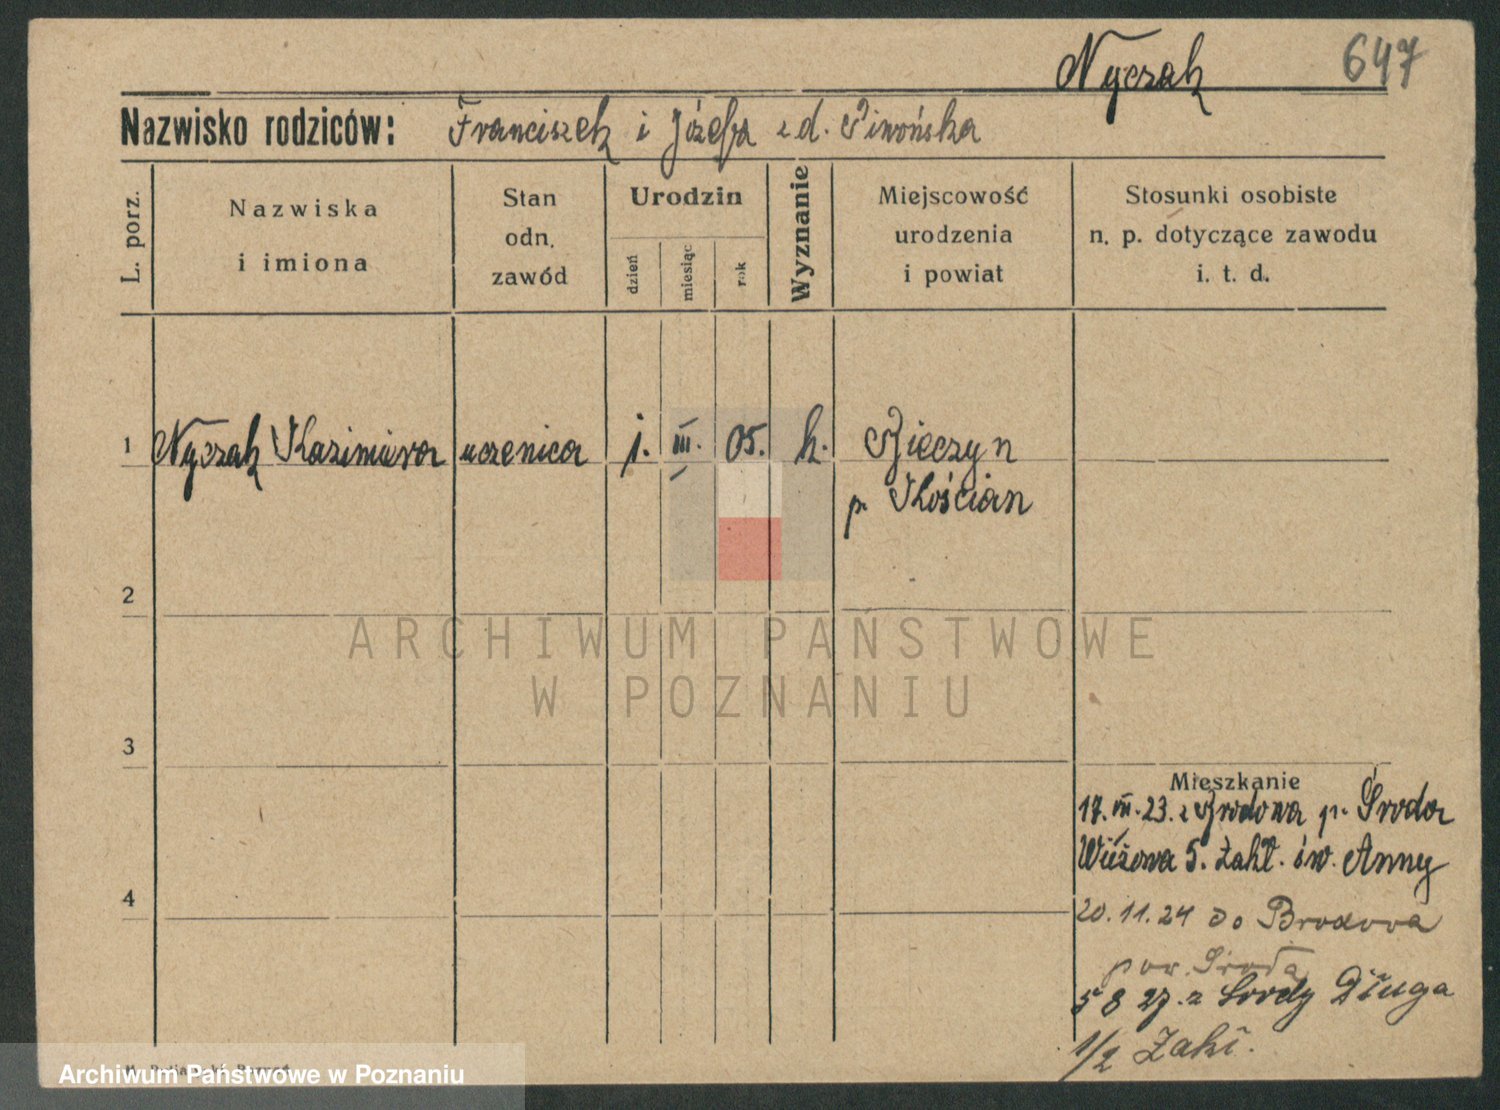 Nyczak 647
Nazwisko rodziców: Franciszek i Józefa z d. Piwońska
L. porz.
Nazwiska
i imiona
Stan
odn.
zawód
Urodzin
dzień
miesiąc
rok
Wyznanie
Miejscowość
urodzenia
i powiat
Stosunki osobiste
n. p. dotyczące zawodu
i. t. d.
1 Nyczak Kazimiera uczenica 1. III. 05. k. Bieczyn
p. Kościan
2
ARCHIWUM PAŃSTWOWE
W POZNANIU
3
Mieszkanie
17. III. 23. z Brodowa p. Środa
Wieżowa 5. Zakł. św. Anny
4
20.11.24 do Brodowa
pow. Środa
5 8 27. z Środy Długa
1/2 Zakł.
Archiwum Państwowe w Poznaniu